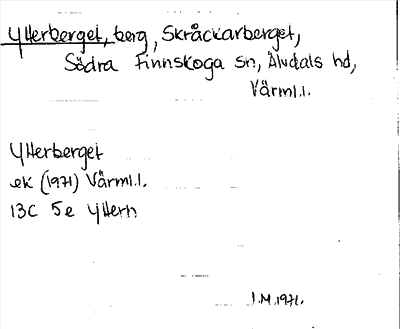 Ytterberget, berg, Skråckarberget,
Södra Finnskoga sn, Älvdals hd,
Värml.l.
Ytterberget
ek (1971) Värml.l.
13C 5e Yttern
I.M.1971.